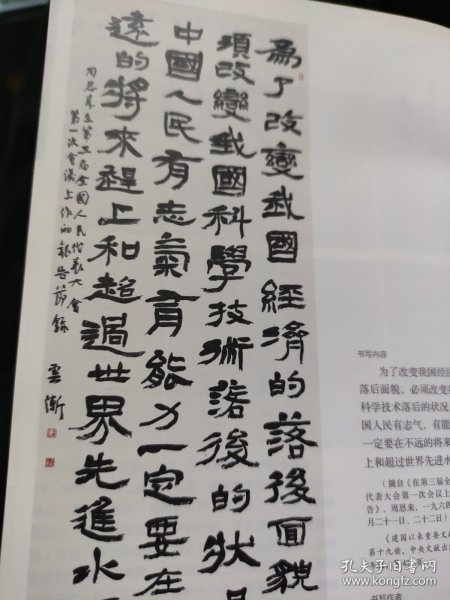 為了改變我國經濟的落後面貌
須改變我國科學技術落後的狀
中國人民有志氣有能力一定要在
遠的將來趕上和超過世界先進水
周恩來在第三屆全國人民代表大會
第一次會議上作的報告節錄
雲
书写内容
为了改变我国经济
落后面貌,必须改变
科学技术落后的状况
国人民有志气,有能
一定要在不远的将来
上和超过世界先进水
(摘自《在第三届全
代表大会第一次会议上
告》,周恩来,一九六四
月二十一日、二十二日)
《建国以来重要文
第十九册,中央文献出
书写作者
孔夫子旧书网